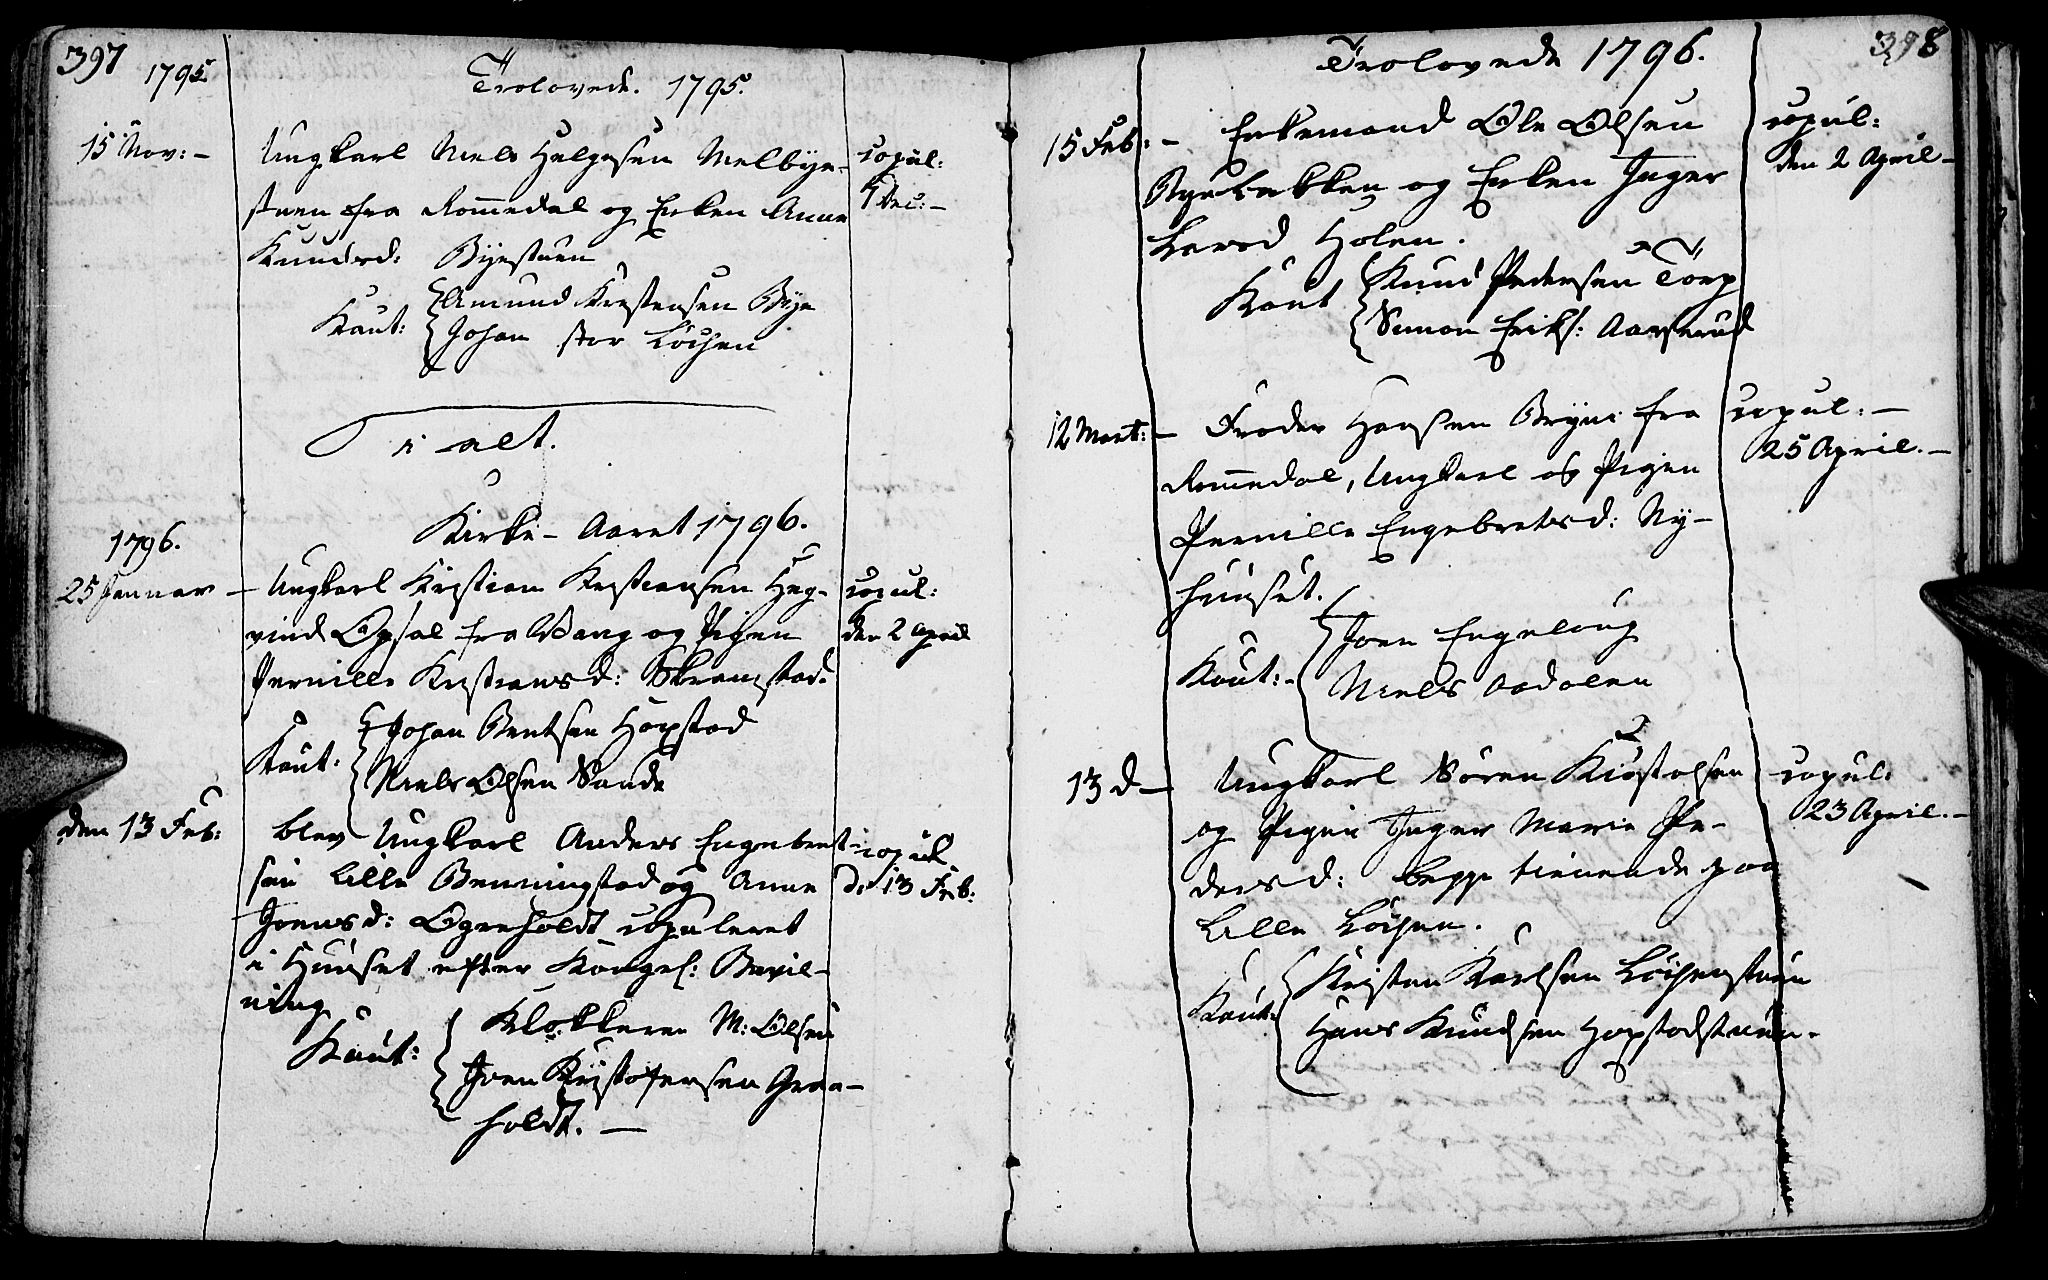 397
1795.
Trolovede. 1795.
15 Nov: –
Ungkarl Niels Helgesen Melbye-
stuen fra Rommedal og Enken Anne
Knudsd: Byestuen
Kaut: Amund Kristensen Bye
Johan stor Löchen
copul:
Dec: –
i alt.
Kirke – Aaret 1796.
1796.
25 Januar –
Ungkarl Kristian Kristiansen Heg-
vind Opsal fra Vang og Pigen
Pernille Kristiansd: Skramstad.
Kaut: Johan Bentsen Hopstad
Niels Olsen Sande
copul:
den 2 April
den 13 Feb:
blev Ungkarl Anders Engebret-
sen Lille Benningstad og Anne
Joensd: Ogreholdt copuleret
i Huuset efter Kongel: Bevil-
ning
Kaut: Klokkeren M: Olsen
Joen Kristofersen Graa-
holdt. –
copul
d: 13 Feb:
398
Trolovede 1796.
15 Feb: –
Enkemand Ole Olsen
Byebakken og Enken Inger
Larsd Holen.
Kaut Knud Pedersen Torp
Simon Eriks: Aarserud
copul:
den 2 April –
12 Mart: –
Froder Hansen Bryni fra
Rommedal, Ungkarl og Pigen
Pernille Engebretsd: Ny-
huuset.
Kaut: – Joen Engeloug
Niels Aadalen
copul: –
25 April. –
13 d –
Ungkarl Sören Kiöstolsen
og Pigen Inger Marie Pe-
dersd: begge tienende paa
Lille Löchen.
Kaut: Kristen Karlsen Löchenstuen
Hans Knudsen Hopstadstuen.
copul:
23 April. –